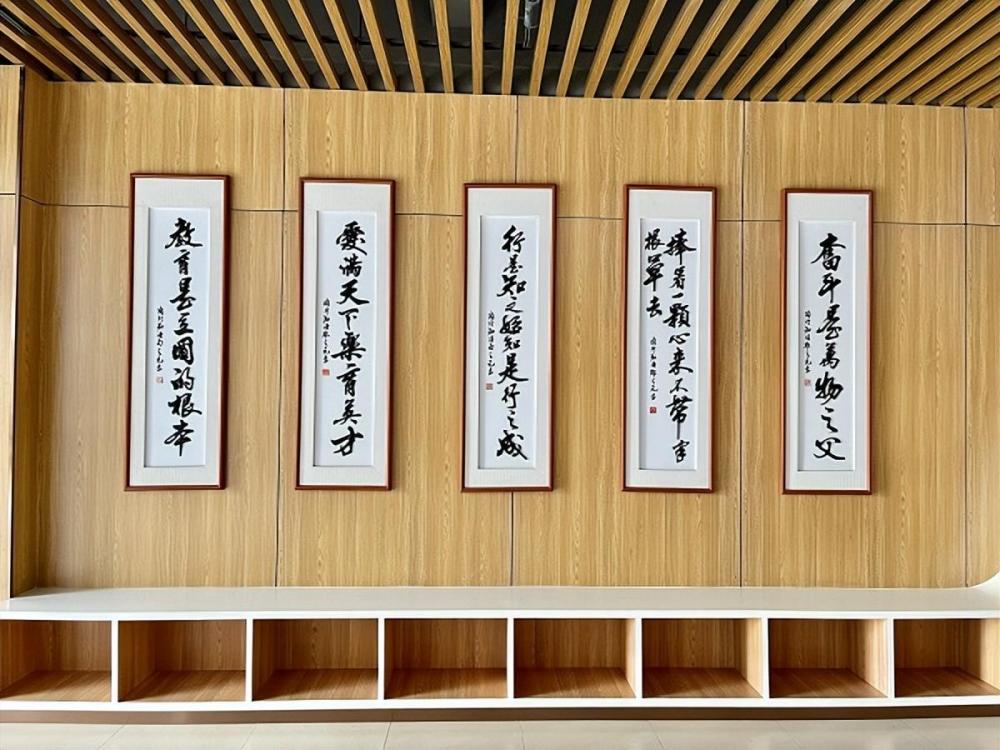 教育是立國的根本
愛滿天下樂育英才
行是知之始知是行之成
捧着一顆心来不帶半
根草去
奮斗是萬物之父